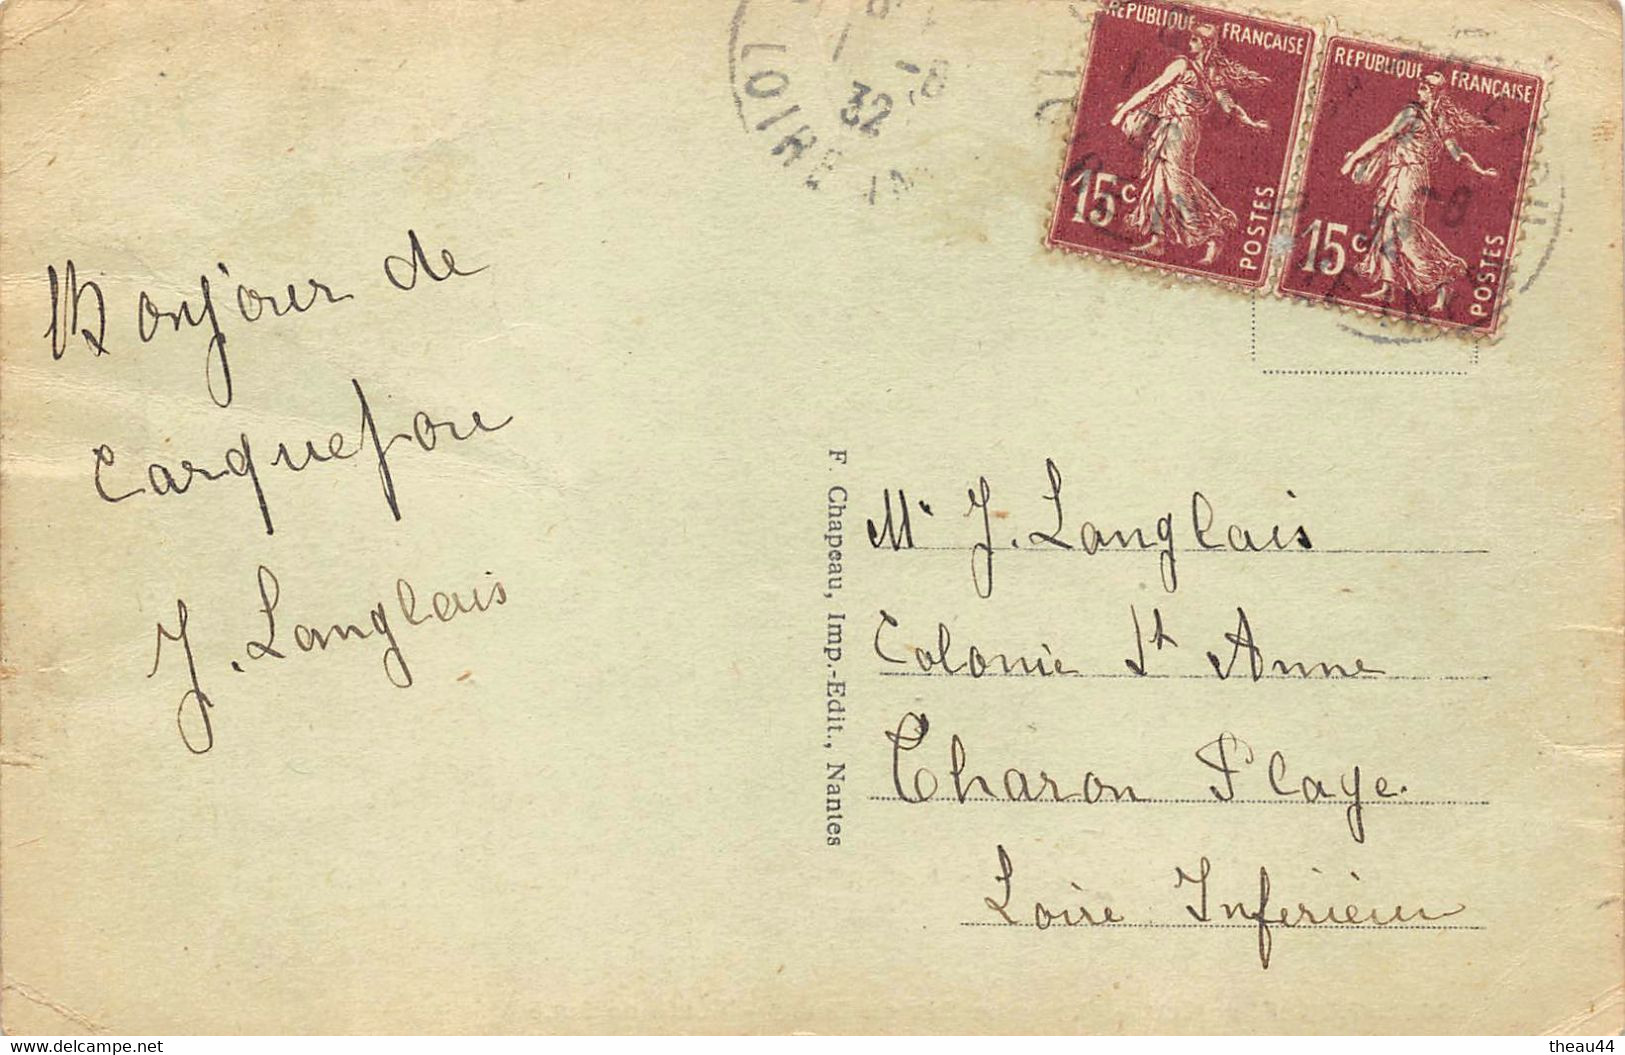 LOIRE INF
32
-8
REPUBLIQUE FRANÇAISE
15c
POSTES
REPUBLIQUE FRANÇAISE
15c
POSTES
-8
32
Bonjour de
Carquefou
J. Langlais
F. Chapeau, Imp.-Edit., Nantes
Mr J. Langlais
Colonie St Anne
Tharon Plage.
Loire Inférieur
Delcampe.net
theau44